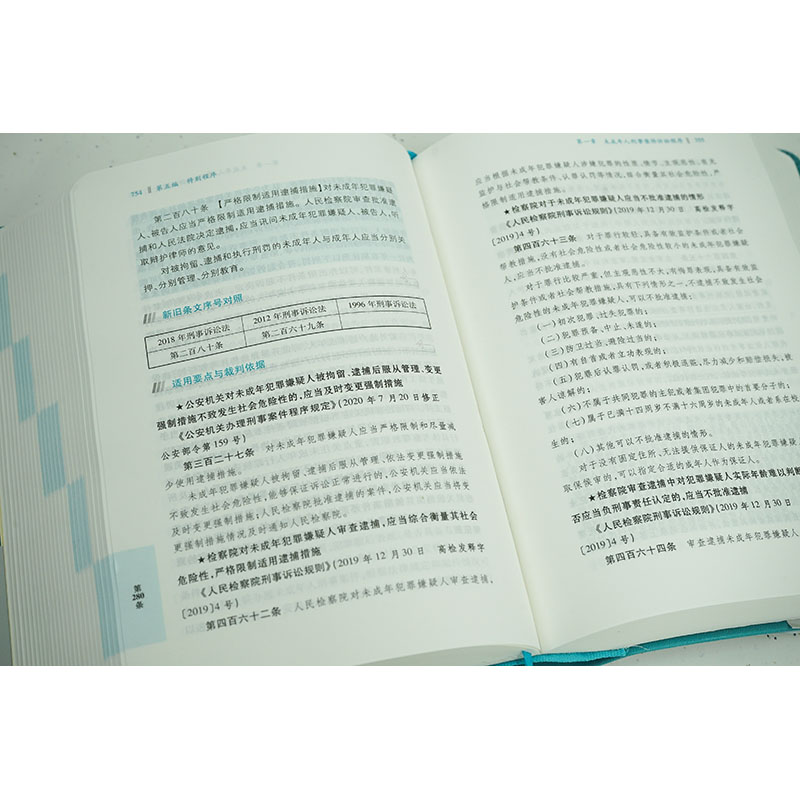 754 第五编 特别程序
第二百八十条 【严格限制适用逮捕措施】对未成年犯罪嫌疑
人、被告人应当严格限制适用逮捕措施。人民检察院审查批准逮
捕和人民法院决定逮捕,应当讯问未成年犯罪嫌疑人、被告人,听
取辩护律师的意见。
对被拘留、逮捕和执行刑罚的未成年人与成年人应当分别关
押、分别管理、分别教育。
新旧条文序号对照
2018 年刑事诉讼法 2012 年刑事诉讼法 1996 年刑事诉讼法
第二百八十条 第二百六十九条
适用要点与裁判依据
★公安机关对未成年犯罪嫌疑人被拘留、逮捕后服从管理、变更
强制措施不致发生社会危险性的,应当及时变更强制措施
《公安机关办理刑事案件程序规定》(2020 年 7 月 20 日修正
公安部令第 159 号)
第三百二十七条 对未成年犯罪嫌疑人应当严格限制和尽量减
少使用逮捕措施。
未成年犯罪嫌疑人被拘留、逮捕后服从管理、依法变更强制措施
不致发生社会危险性,能够保证诉讼正常进行的,公安机关应当依法
及时变更强制措施;人民检察院批准逮捕的案件,公安机关应当将变
更强制措施情况及时通知人民检察院。
★检察院对未成年犯罪嫌疑人审查逮捕,应当综合衡量其社会
危险性,严格限制适用逮捕措施
《人民检察院刑事诉讼规则》(2019 年 12 月 30 日 高检发释字
〔2019〕4 号)
第四百六十二条 人民检察院对未成年犯罪嫌疑人审查逮捕,
第
280
条
第一章 未成年人刑事案件诉讼程序 755
应当根据未成年犯罪嫌疑人涉嫌犯罪的性质、情节、主观恶性、有无
监护与社会帮教条件、认罪认罚等情况,综合衡量其社会危险性,严
格限制适用逮捕措施。
★检察院对于未成年犯罪嫌疑人应当不批准逮捕的情形
《人民检察院刑事诉讼规则》(2019 年 12 月 30 日 高检发释字
〔2019〕4 号)
第四百六十三条 对于罪行较轻,具备有效监护条件或者社会
帮教措施,没有社会危险性或者社会危险性较小的未成年犯罪嫌疑
人,应当不批准逮捕。
对于罪行比较严重,但主观恶性不大,有悔罪表现,具备有效监
护条件或者社会帮教措施,具有下列情形之一,不逮捕不致发生社会
危险性的未成年犯罪嫌疑人,可以不批准逮捕:
(一)初次犯罪、过失犯罪的;
(二)犯罪预备、中止、未遂的;
(三)防卫过当、避险过当的;
(四)有自首或者立功表现的;
(五)犯罪后认罪认罚,或者积极退赃,尽力减少和赔偿损失,被
害人谅解的;
(六)不属于共同犯罪的主犯或者集团犯罪中的首要分子的;
(七)属于已满十四周岁不满十六周岁的未成年人或者系在校
生的;
(八)其他可以不批准逮捕的情形。
对于没有固定住所、无法提供保证人的未成年犯罪嫌疑
取保候审的,可以指定合适的成年人作为保证人。
★检察院审查逮捕中对犯罪嫌疑人实际年龄难以判断
否应当负刑事责任认定的,应当不批准逮捕
《人民检察院刑事诉讼规则》(2019 年 12 月 30 日
〔2019〕4 号)
第四百六十四条 审查逮捕未成年犯罪嫌疑人